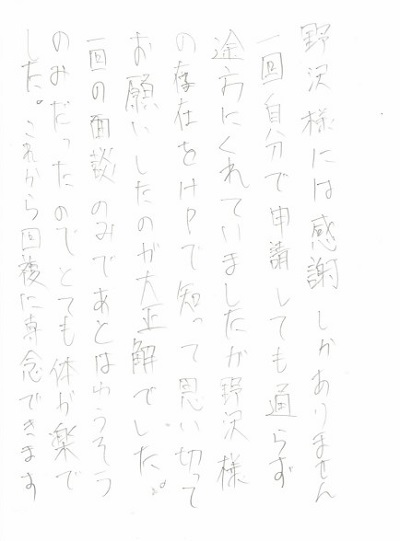 野沢様には感謝しかありません
一回自分で申請しても通らず
途方にくれていましたが野沢様
の存在をHPで知って思い切って
お願いしたのが大正解でした。
一回の面談のみであとはゆうそう
のみだったのでとても体が楽で
した。これから回復に専念できます